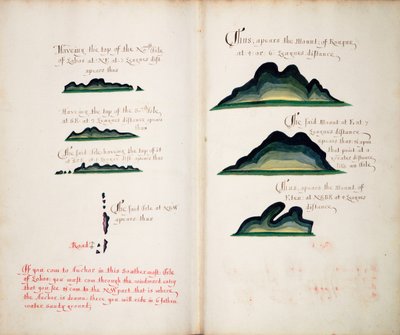 Haveing the top of the
of Lobos at: NE at: 7 Leagues dist:
apears thus
Haveing the top of the So:most Isle
at SE at 7 Leagues distance
thus
The said Isle haveing the top of it
at Leagues dist: apears thus
The said Isle at NbW
apears thus
Road
If you com to Anchor in this Southermost Isle
of Lobos: you must com through the windward entry
that you see is com to the NW part that is where
the Anchor is drawn: there you will ride in 6 fathm
water sandy ground;
Thus, apears the Mount; of
at 4 or 6 Leagues
distance
The said Mount at E at 7
Leagues distance
apears thus: &: upon
that point at a
greater distance
like an Isle
Thus, apears the Mount, of
Eten: at NEbE at 4 Leagues
distance